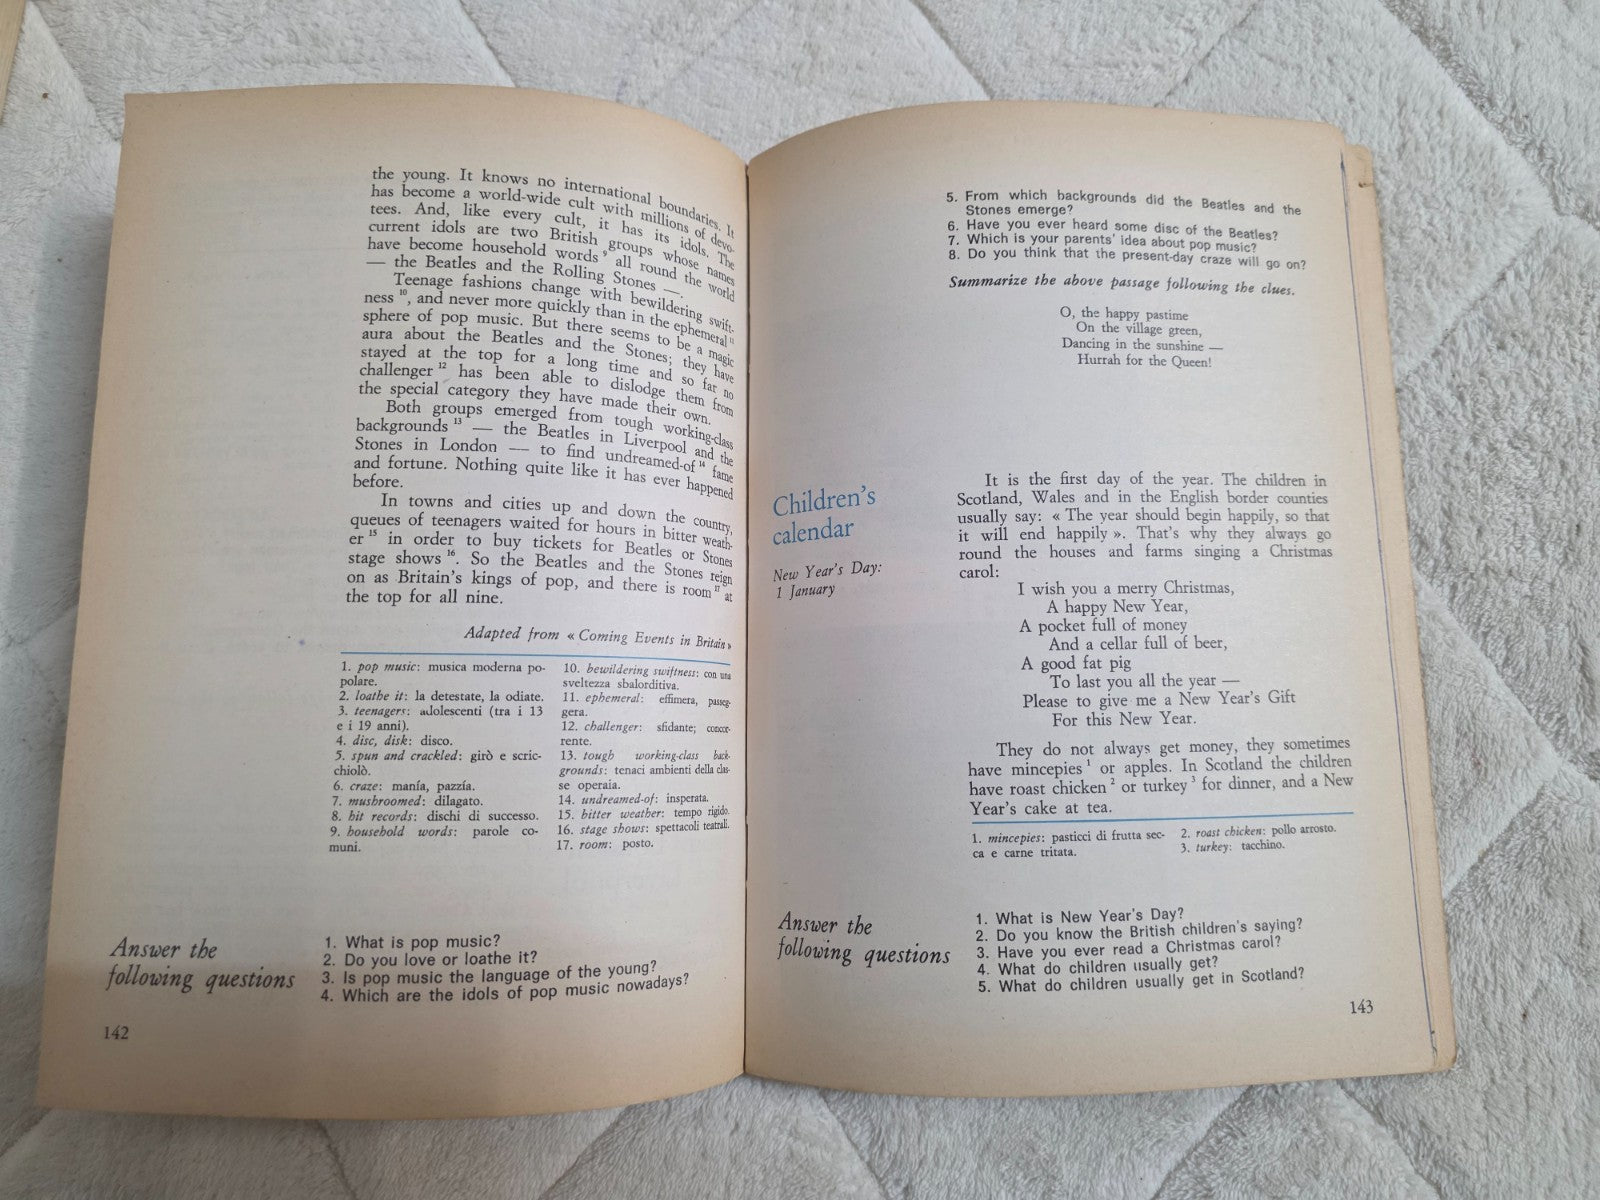 the young. It knows no international boundaries. It
has become a world-wide cult with millions of devo-
tees. And, like every cult, it has its idols. The
current idols are two British groups whose names
have become household words 9 all round the world
— the Beatles and the Rolling Stones —.
Teenage fashions change with bewildering swift-
ness 10, and never more quickly than in the ephemeral 11
sphere of pop music. But there seems to be a magic
aura about the Beatles and the Stones; they have
stayed at the top for a long time and so far no
challenger 12 has been able to dislodge them from
the special category they have made their own.
Both groups emerged from tough working-class
backgrounds 13 — the Beatles in Liverpool and the
Stones in London — to find undreamed-of 14 fame
and fortune. Nothing quite like it has ever happened
before.
In towns and cities up and down the country,
queues of teenagers waited for hours in bitter weath-
er 15 in order to buy tickets for Beatles or Stones
stage shows 16. So the Beatles and the Stones reign
on as Britain's kings of pop, and there is room 17 at
the top for all nine.
Adapted from « Coming Events in Britain »
1. pop music: musica moderna po-
polare.
2. loathe it: la detestate, la odiate.
3. teenagers: adolescenti (tra i 13
e i 19 anni).
4. disc, disk: disco.
5. spun and crackled: girò e scric-
chiolò.
6. craze: manía, pazzía.
7. mushroomed: dilagato.
8. hit records: dischi di successo.
9. household words: parole co-
muni.
10. bewildering swiftness: con una
sveltezza sbalorditiva.
11. ephemeral: effimera, passeg-
gera.
12. challenger: sfidante; concor-
rente.
13. tough working-class back-
grounds: tenaci ambienti della clas-
se operaia.
14. undreamed-of: insperata.
15. bitter weather: tempo rigido.
16. stage shows: spettacoli teatrali.
17. room: posto.
Answer the
following questions
1. What is pop music?
2. Do you love or loathe it?
3. Is pop music the language of the young?
4. Which are the idols of pop music nowadays?
142
5. From which backgrounds did the Beatles and the
Stones emerge?
6. Have you ever heard some disc of the Beatles?
7. Which is your parents' idea about pop music?
8. Do you think that the present-day craze will go on?
Summarize the above passage following the clues.
O, the happy pastime
On the village green,
Dancing in the sunshine —
Hurrah for the Queen!
Children's
calendar
New Year's Day:
1 January
It is the first day of the year. The children in
Scotland, Wales and in the English border counties
usually say: « The year should begin happily, so that
it will end happily ». That's why they always go
round the houses and farms singing a Christmas
carol:
I wish you a merry Christmas,
A happy New Year,
A pocket full of money
And a cellar full of beer,
A good fat pig
To last you all the year —
Please to give me a New Year's Gift
For this New Year.
They do not always get money, they sometimes
have mincepies 1 or apples. In Scotland the children
have roast chicken 2 or turkey 3 for dinner, and a New
Year's cake at tea.
1. mincepies: pasticci di frutta sec-
ca e carne tritata.
2. roast chicken: pollo arrosto.
3. turkey: tacchino.
Answer the
following questions
1. What is New Year's Day?
2. Do you know the British children's saying?
3. Have you ever read a Christmas carol?
4. What do children usually get?
5. What do children usually get in Scotland?
143